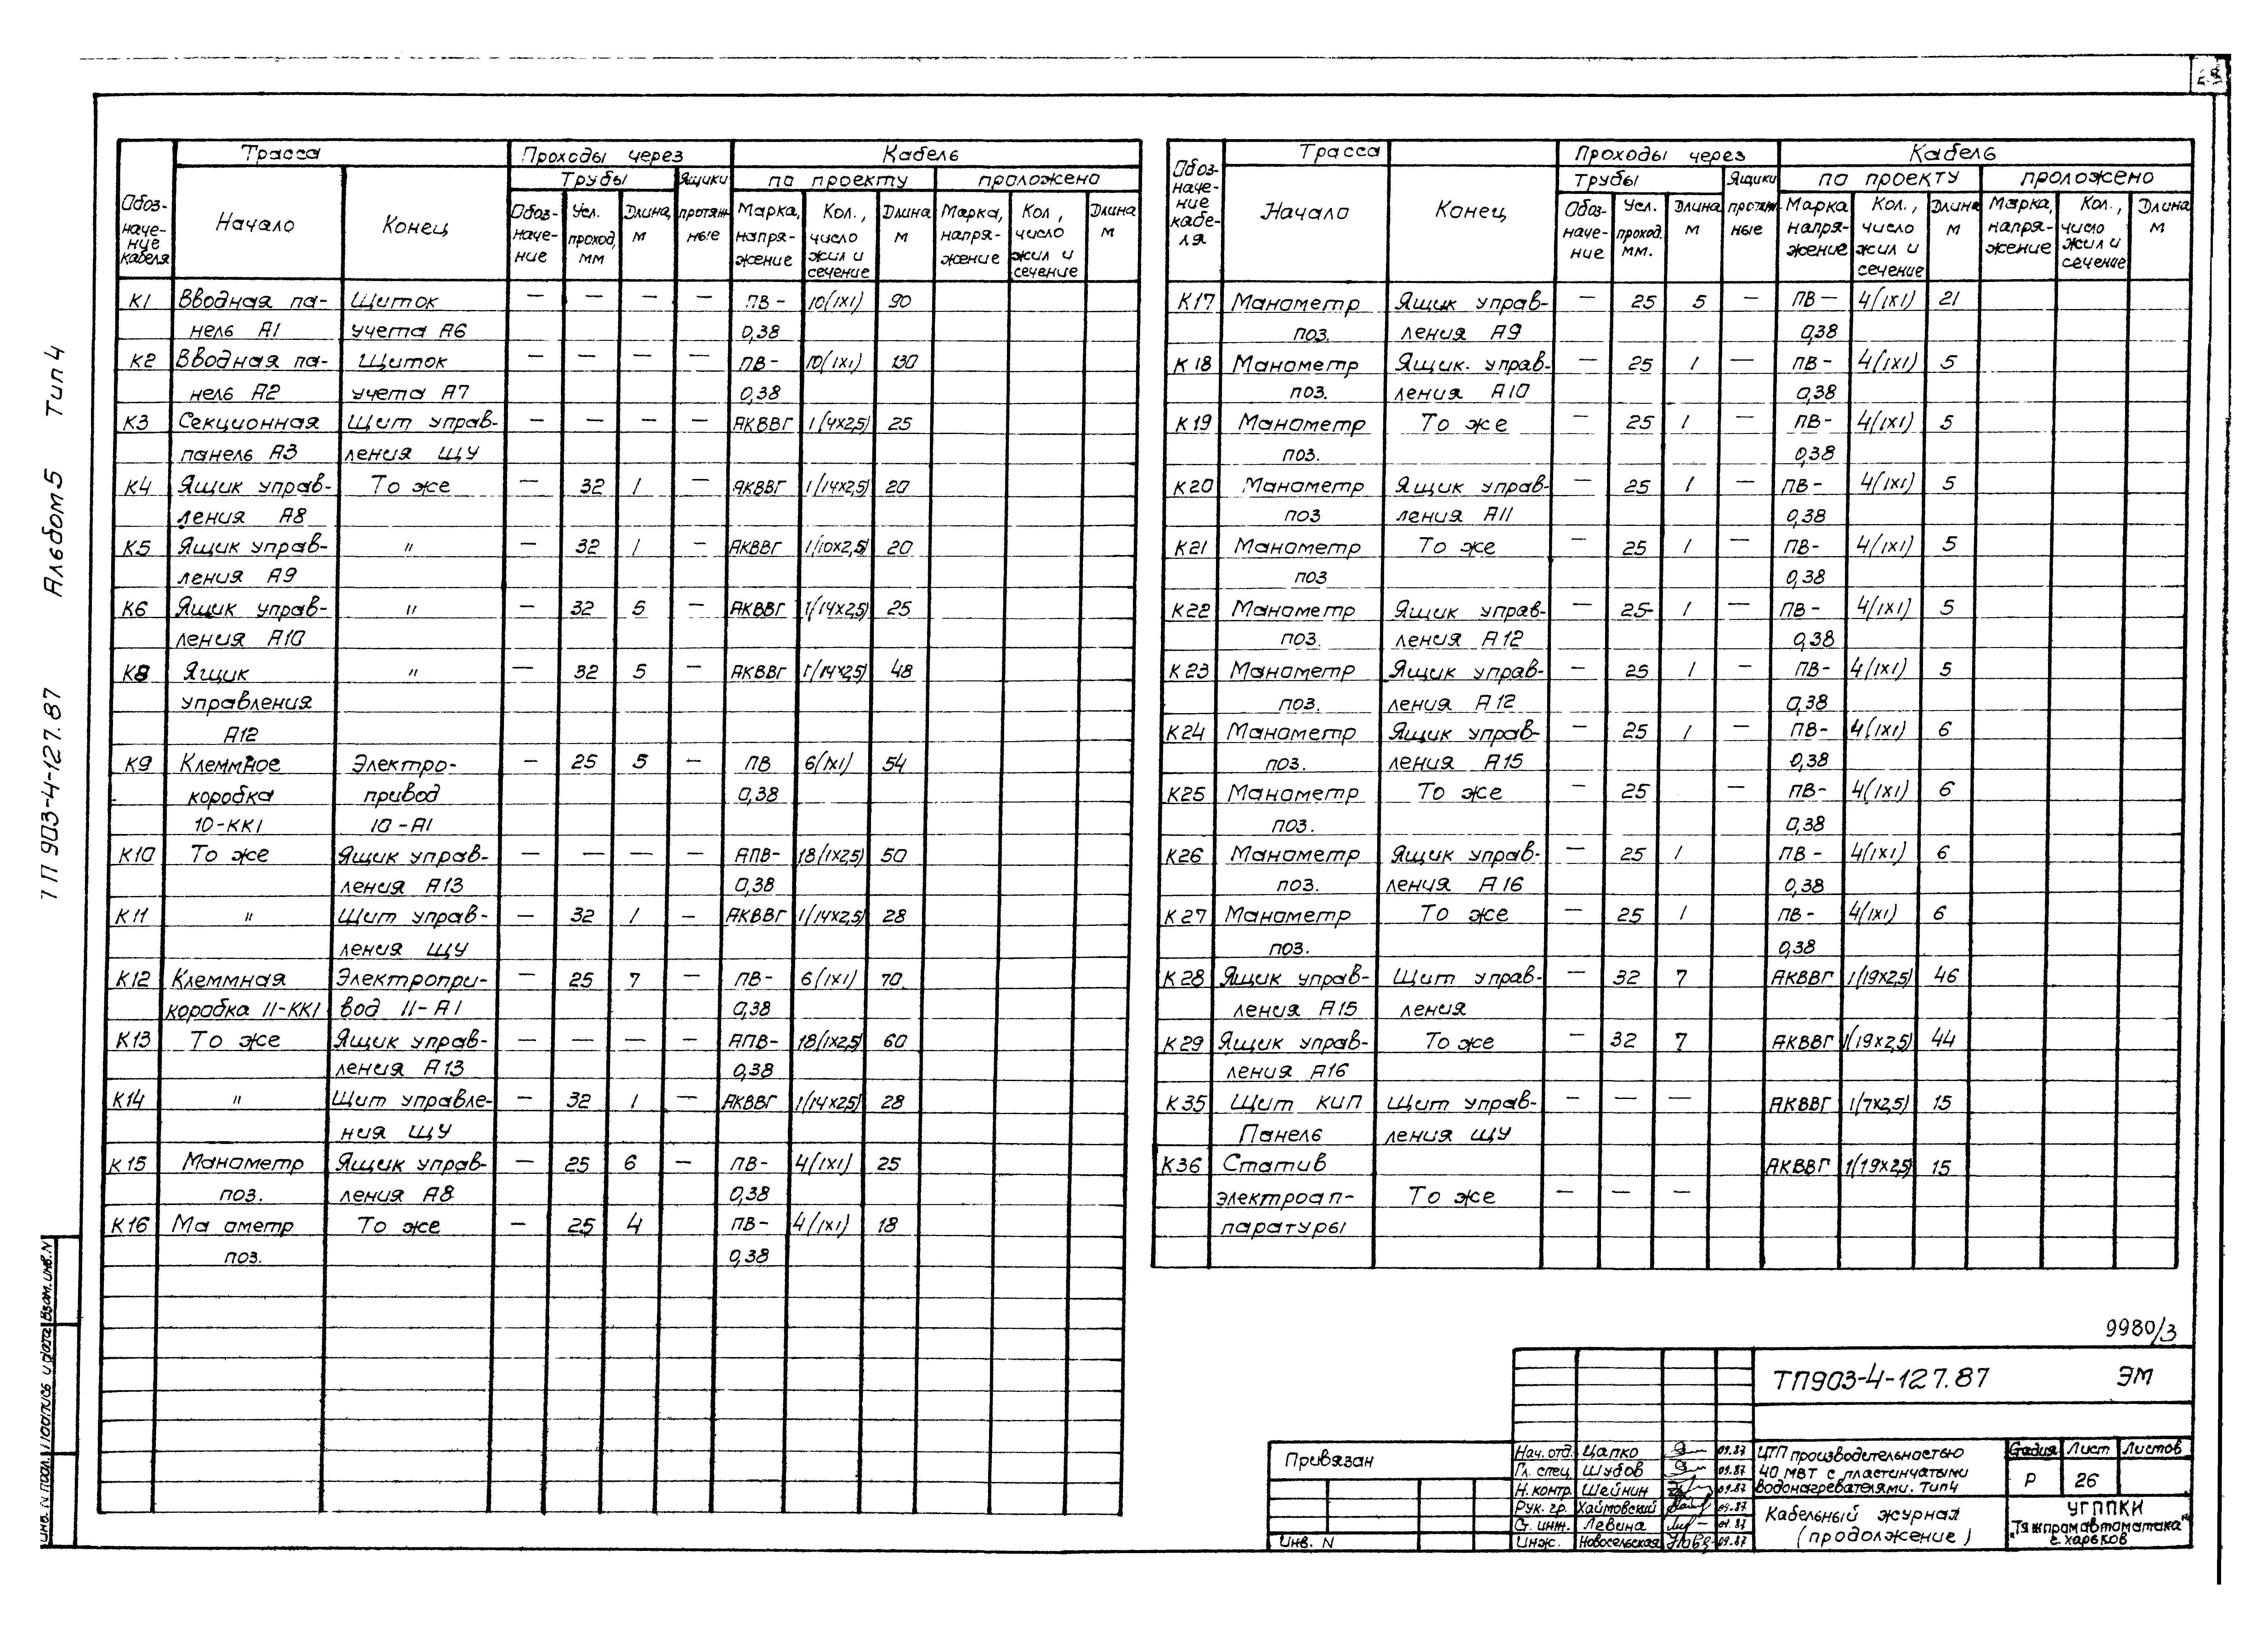 28
ТП 903-4-127.87 Альбом 5 Тип 4
Обоз-наче-ние кабеля | Трасса | Проходы через | Кабель
Трубы | Ящики протяж-ные | по проекту | проложено
Начало | Конец | Обоз-наче-ние | Усл. проход, мм | Длина, м | Марка, напря-жение | Кол., число жил и сечение | Длина м | Марка, напря-жение | Кол, число жил и сечение | Длина м
К1 Вводная па- Щиток — — — — ПВ- 10(1х1) 90
нель А1 учета А6 0,38
К2 Вводная па- Щиток — — — — ПВ- 10(1х1) 130
нель А2 учета А7 0,38
К3 Секционная Щит управ- — — — — АКВВГ 1(4х2,5) 25
панель А3 ления ЩУ
К4 Ящик управ- То же — 32 1 — АКВВГ 1(14х2,5) 20
ления А8
К5 Ящик управ- " — 32 1 — АКВВГ 1(10х2,5) 20
ления А9
К6 Ящик управ- " — 32 5 — АКВВГ 1(14х2,5) 25
ления А10
К8 Ящик " — 32 5 — АКВВГ 1(14х2,5) 48
управления
А12
К9 Клеммное Электро- — 25 5 — ПВ 6(1х1) 54
коробка привод 0,38
10-КК1 10-А1
К10 То же Ящик управ- — — — — АПВ- 18(1х2,5) 50
ления А13 0,38
К11 " Щит управ- — 32 1 — АКВВГ 1(14х2,5) 28
ления ЩУ
К12 Клеммная Электропри- — 25 7 — ПВ- 6(1х1) 70
коробка 11-КК1 вод 11-А1 0,38
К13 То же Ящик управ- — — — — АПВ- 18(1х2,5) 60
ления А13 0,38
К14 " Щит управле- — 32 1 — АКВВГ 1(14х2,5) 28
ния ЩУ
К15 Манометр Ящик управ- — 25 6 — ПВ- 4(1х1) 25
поз. ления А8 0,38
К16 Ма ометр То же — 25 4 ПВ- 4(1х1) 18
поз. 0,38
Обоз-наче-ние кабе-ля | Трасса | Проходы через | Кабель
Трубы | Ящики протяж-ные | по проекту | проложено
Начало | Конец | Обоз-наче-ние | Усл. проход. мм. | Длина м | Марка напря-жение | Кол., число жил и сечение | Длина м | Марка, напря-жение | Кол., число жил и сечение | Длина м
К17 Манометр Ящик управ- — 25 5 — ПВ— 4(1х1) 21
поз. ления А9 0,38
К18 Манометр Ящик. управ- — 25 1 — ПВ- 4(1х1) 5
поз. ления А10 0,38
К19 Манометр То же — 25 1 — ПВ- 4(1х1) 5
поз. 0,38
К20 Манометр Ящик управ- — 25 1 — ПВ- 4(1х1) 5
поз ления А11 0,38
К21 Манометр То же — 25 1 — ПВ- 4(1х1) 5
поз 0,38
К22 Манометр Ящик управ- — 25 1 — ПВ- 4(1х1) 5
поз. ления А12 0,38
К23 Манометр Ящик управ- — 25 1 — ПВ- 4(1х1) 5
поз. ления А12 0,38
К24 Манометр Ящик управ- — 25 1 — ПВ- 4(1х1) 6
поз. ления А15 0,38
К25 Манометр То же — 25 — ПВ- 4(1х1) 6
поз. 0,38
К26 Манометр Ящик управ- — 25 1 ПВ- 4(1х1) 6
поз. ления А16 0,38
К27 Манометр То же — 25 1 ПВ- 4(1х1) 6
поз. 0,38
К28 Ящик управ- Щит управ- — 32 7 АКВВГ 1(19х2,5) 46
ления А15 ления
К29 Ящик управ- То же — 32 7 АКВВГ 1(19х2,5) 44
ления А16
К35 Щит КИП Щит управ- — — — АКВВГ 1(7х2,5) 15
Панель ления ЩУ
К36 Статив АКВВГ 1(19х2,5) 15
электроап- То же — — —
паратуры
9980/3
ТП903-4-127.87 ЭМ
Привязан
Инв. N
Нач. отд. Цапко 09.87
Гл. спец Шубов 09.87
Н. контр. Шейнин 09.87
Рук. гр. Хаймовский 09.87
Ст. инж. Левина 09.87
Инж. Новосельская 09.87
ЦТП производительностью
40 МВт с пластинчатыми
водонагревателями. Тип 4
Стадия Лист Листов
Р 26
Кабельный журнал
(продолжение)
УГППКИ
"Тяжпромавтоматика"
г. Харьков
Инв. N подл. Подпись и дата Взам. инв. N